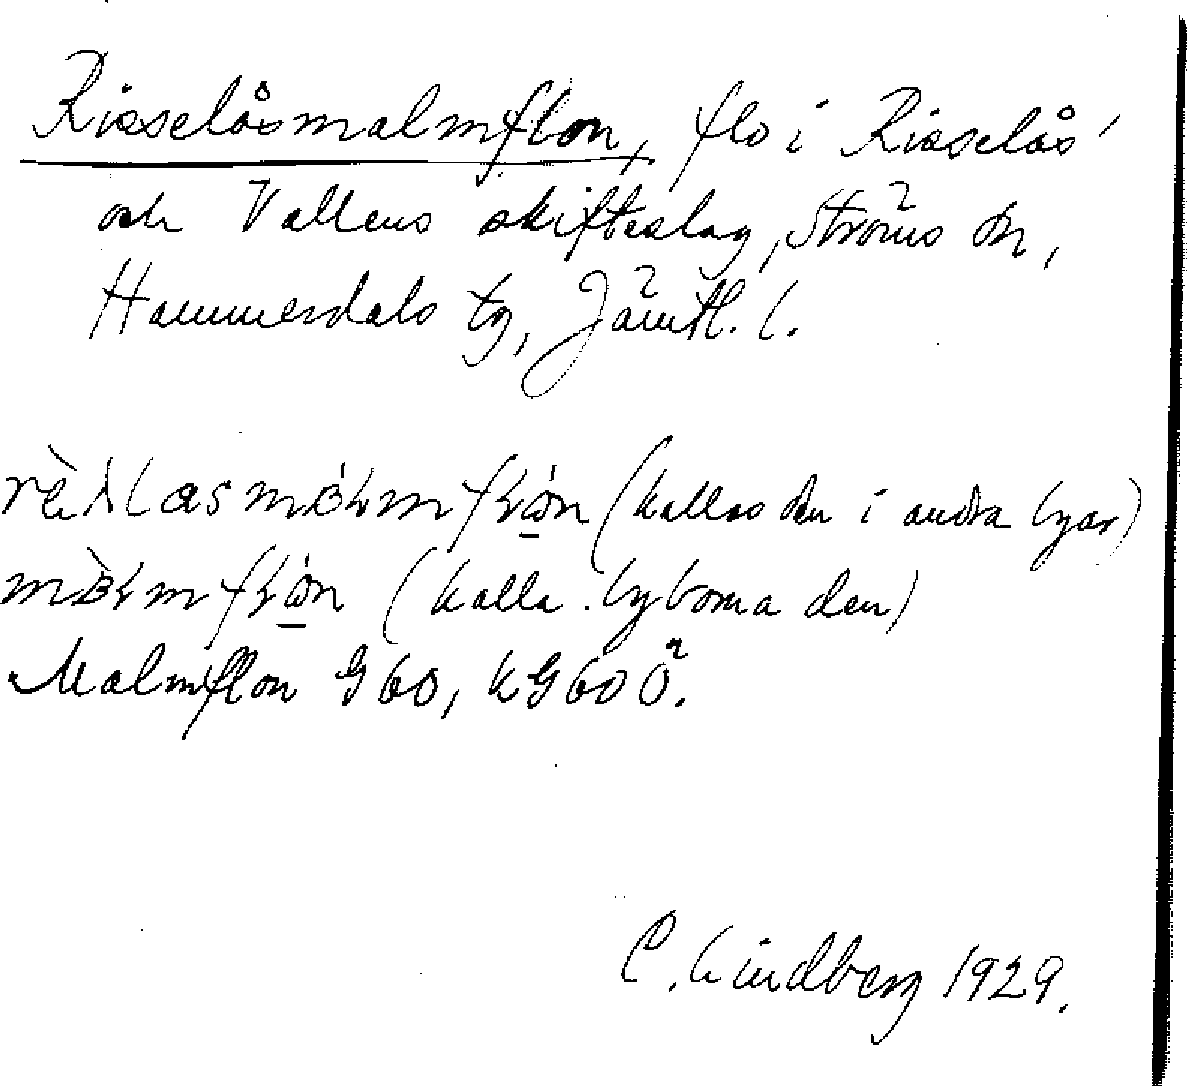 Risselåsmalmflon, flo i Risselås'
och Vallens skifteslag, Ströms sn,
Hammerdals tg, Jämtl. l.
(kallas den i andra byar)
(kalla byborna den)
Malmflon G60, kG60Ö.
C. Lindberg 1929.